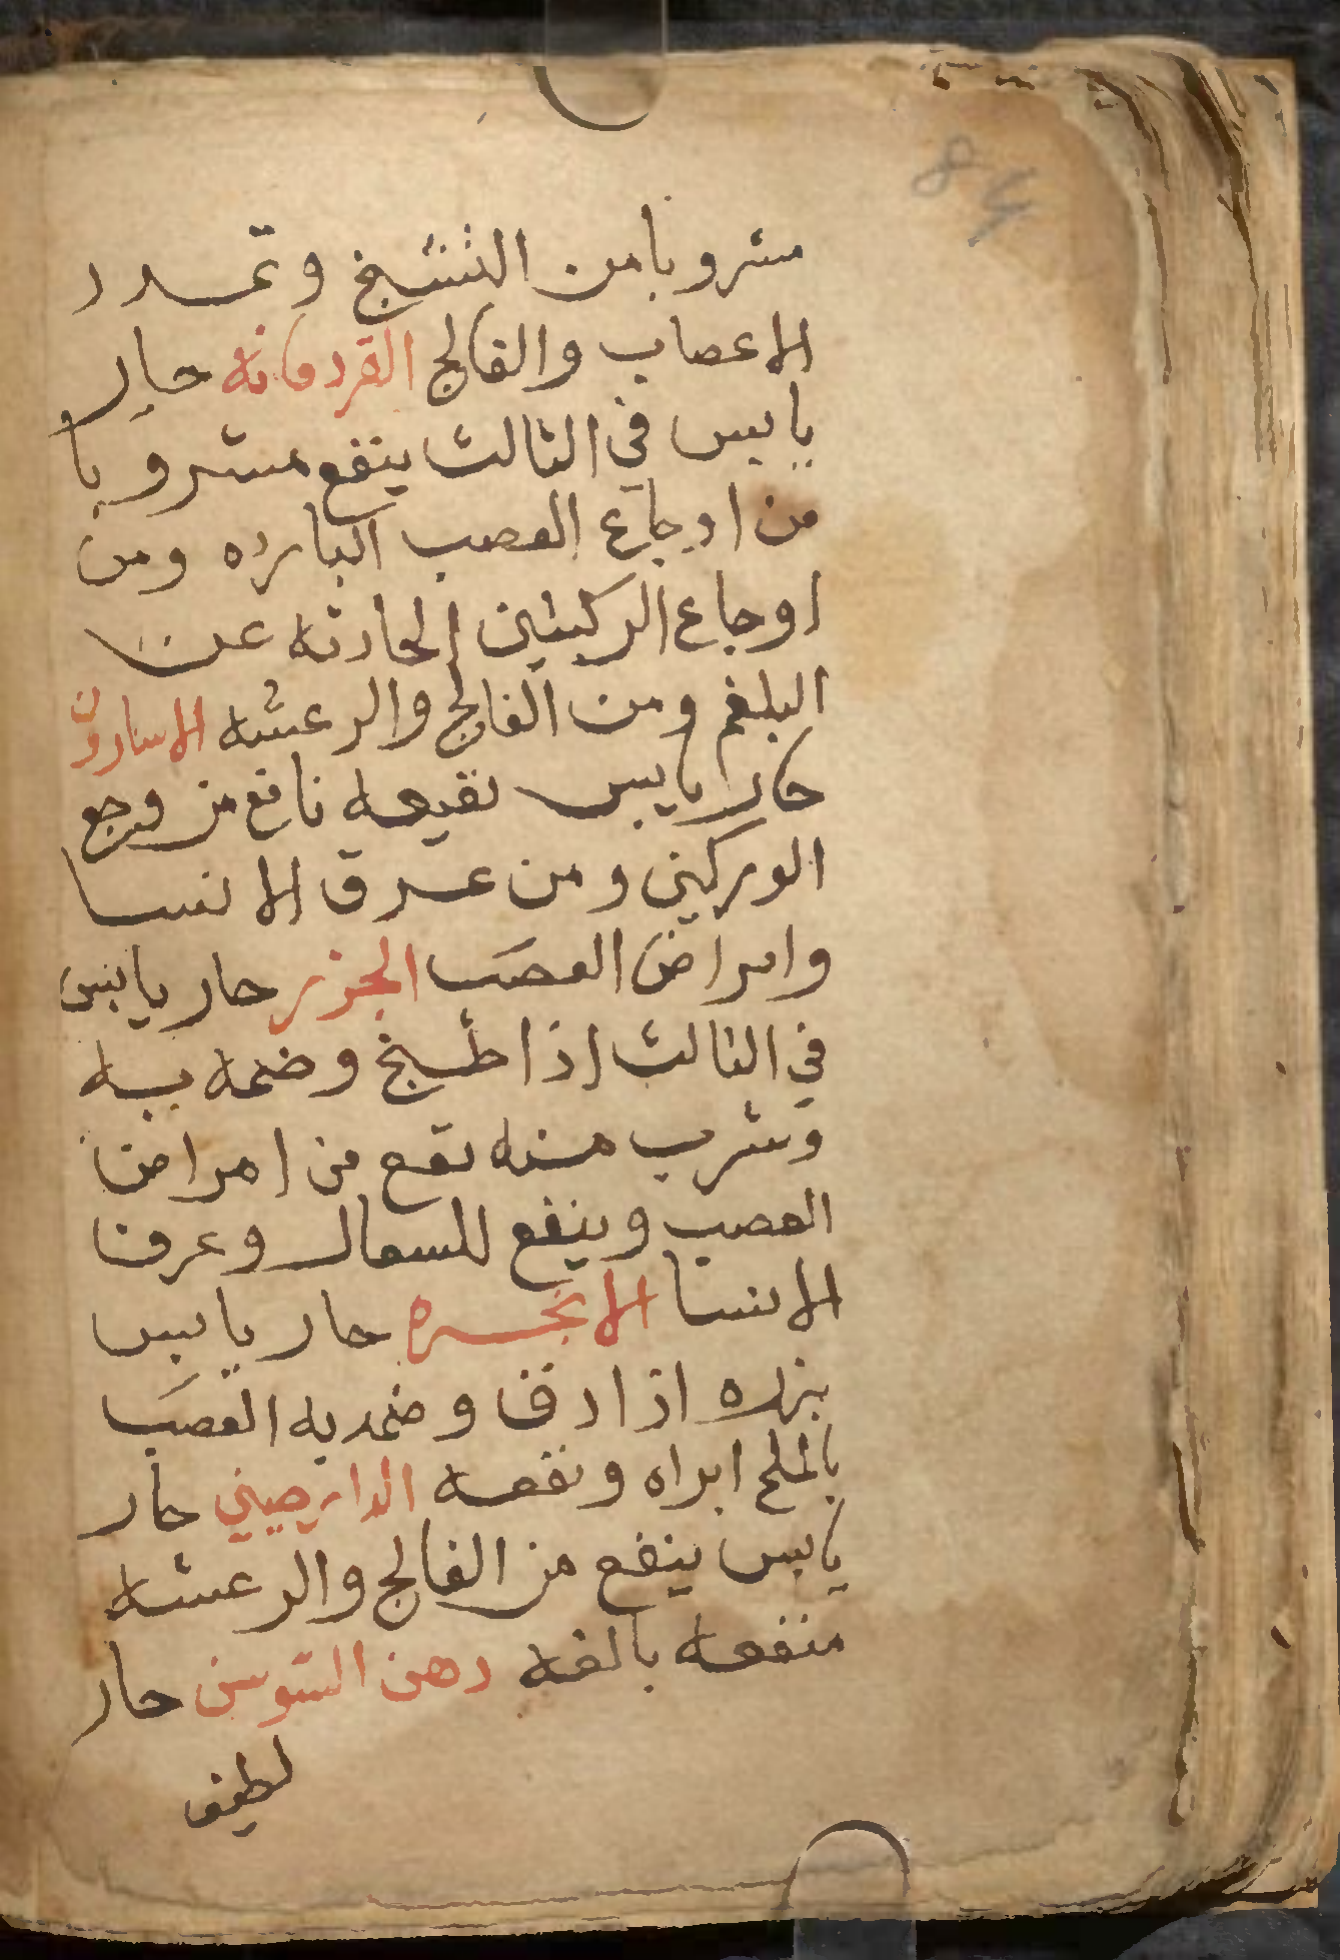 84
مشروبا من التشنج وتمدد
الاعصاب والفالج القردمانه حار
يابس في الثالث ينفع مشروبا
من اوجاع العصب البارده ومن
اوجاع الركبتين الحادثه عن
البلغم ومن الفالج والرعشه الاسارون
حار يابس نقيعه نافع من وجع
الوركين ومن عرق الانسا
وامراض العصب الجزر حار يابس
في الثالث اذا طبخ وضمد به
وشرب منه نفع من امراض
العصب وينفع للسعال وعرق
الانسا الانجره حار يابس
بزره اذا دق وضمد به العصب
بالملح ابراه ونفعه الدارصيني حار
يابس ينفع من الفالج والرعشه
منفعه بالغه دهن السوسن حار
لطيف